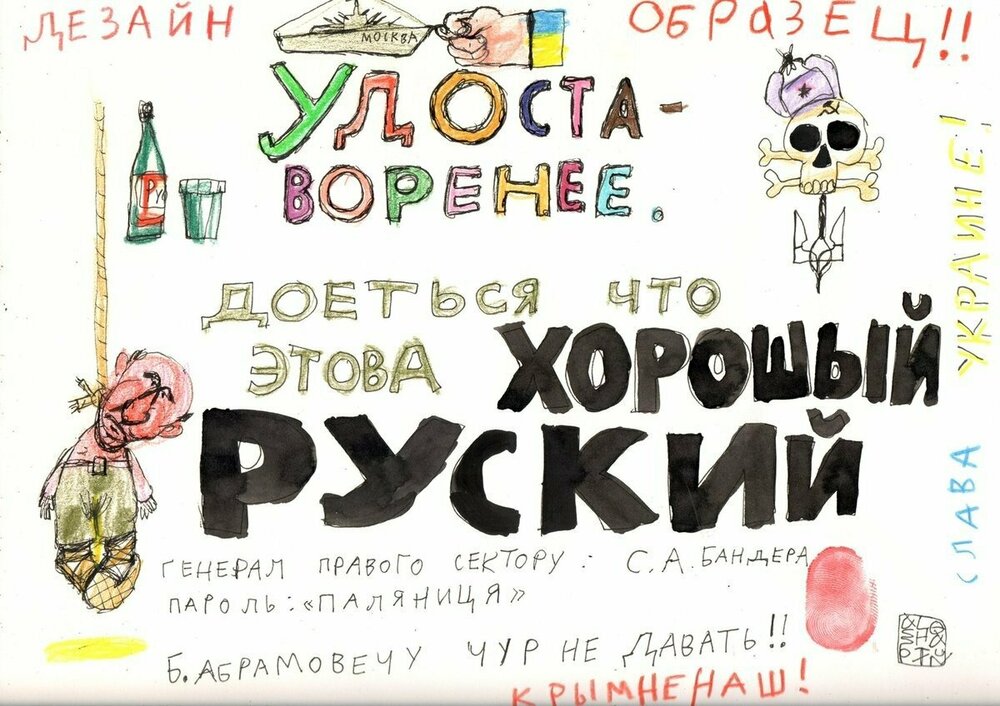 ДЕЗАЙН
ОБРАЗЕЦ!!
МОСКВА
УДОСТА-
ВОРЕНЕЕ.
ДОЕТЬСЯ ЧТО
ЭТОВА ХОРОШЫЙ
РУСКИЙ
ГЕНЕРАЛ ПРАВОГО СЕКТОРУ: С.А.БАНДЕРА
ПАРОЛЬ:«ПАЛЯНИЦЯ»
Б.АБРАМОВЕЧУ ЧУР НЕ ДАВАТЬ!!
КРЫМНЕНАШ!
СЛАВА УКРАИНЕ!